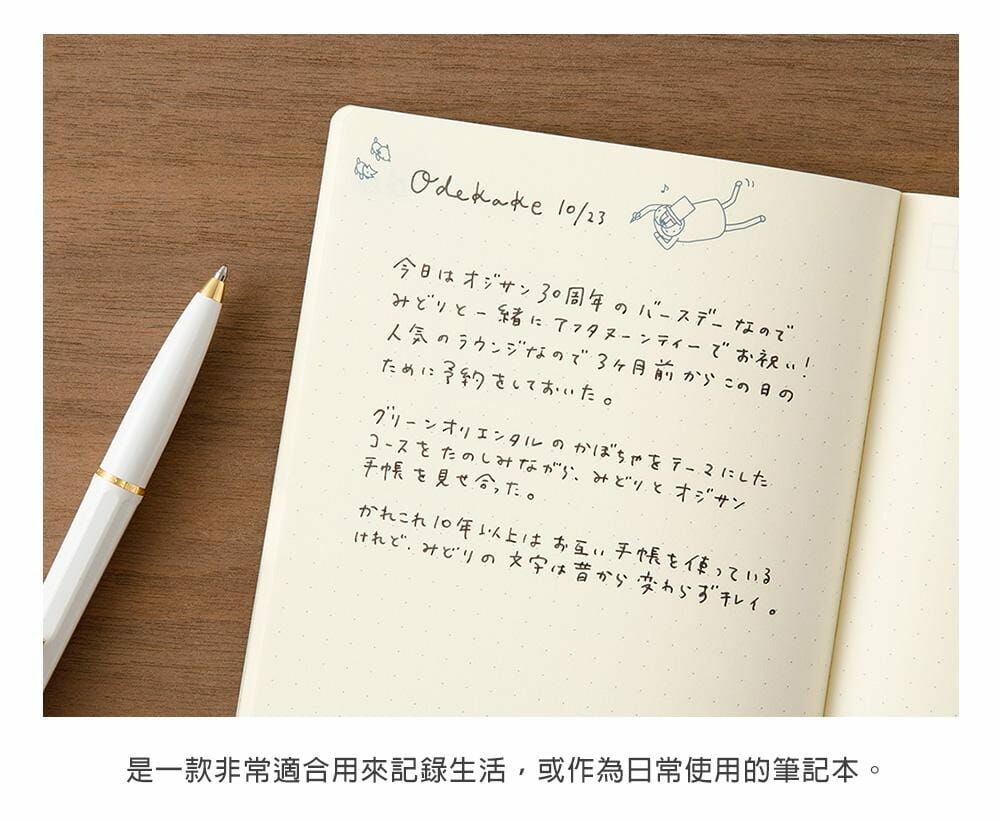 Odekake 10/23
今日はオジサン30周年のバースデーなので
みどりと一緒にアフタヌーンティーでお祝い!
人気のラウンジなので3ヶ月前からこの日の
ために予約をしておいた。
グリーンオリエンタルのかぼちゃをテーマにした
コースをたのしみながら、みどりとオジサン
手帳を見せ合った。
かれこれ10年以上はお互い手帳を使っている
けれど、みどりの文字は昔から変わらずキレイ。
是一款非常適合用來記錄生活,或作為日常使用的筆記本。